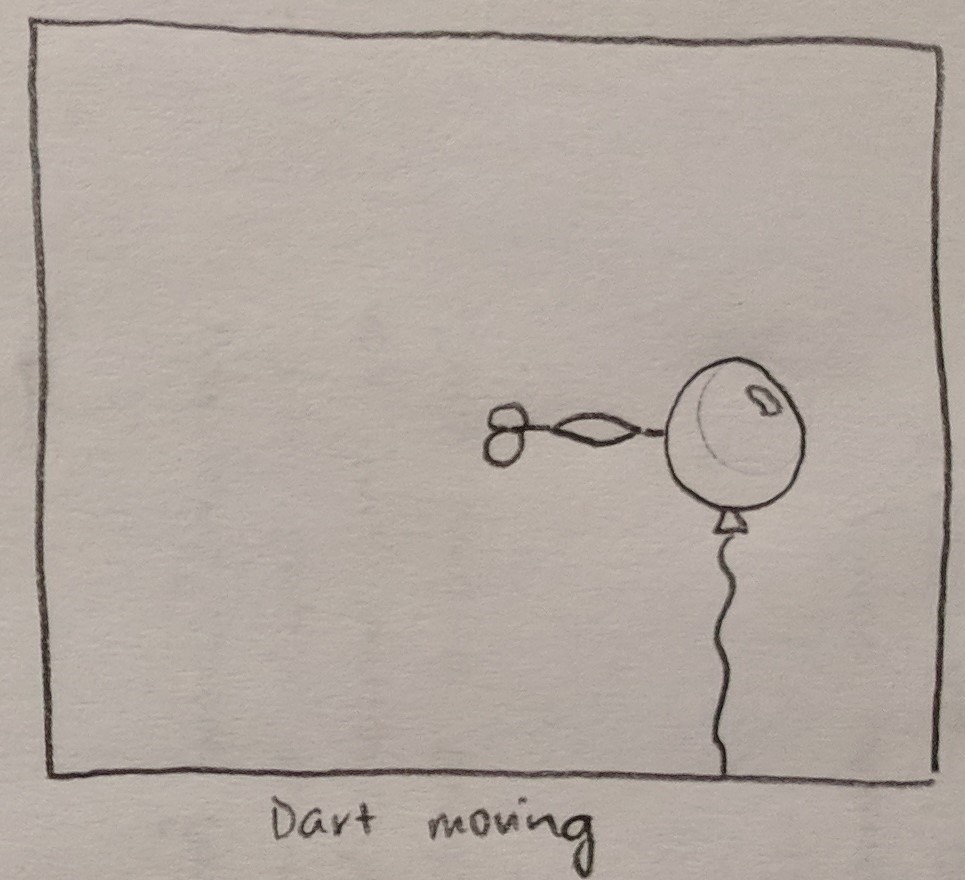 Dart moving